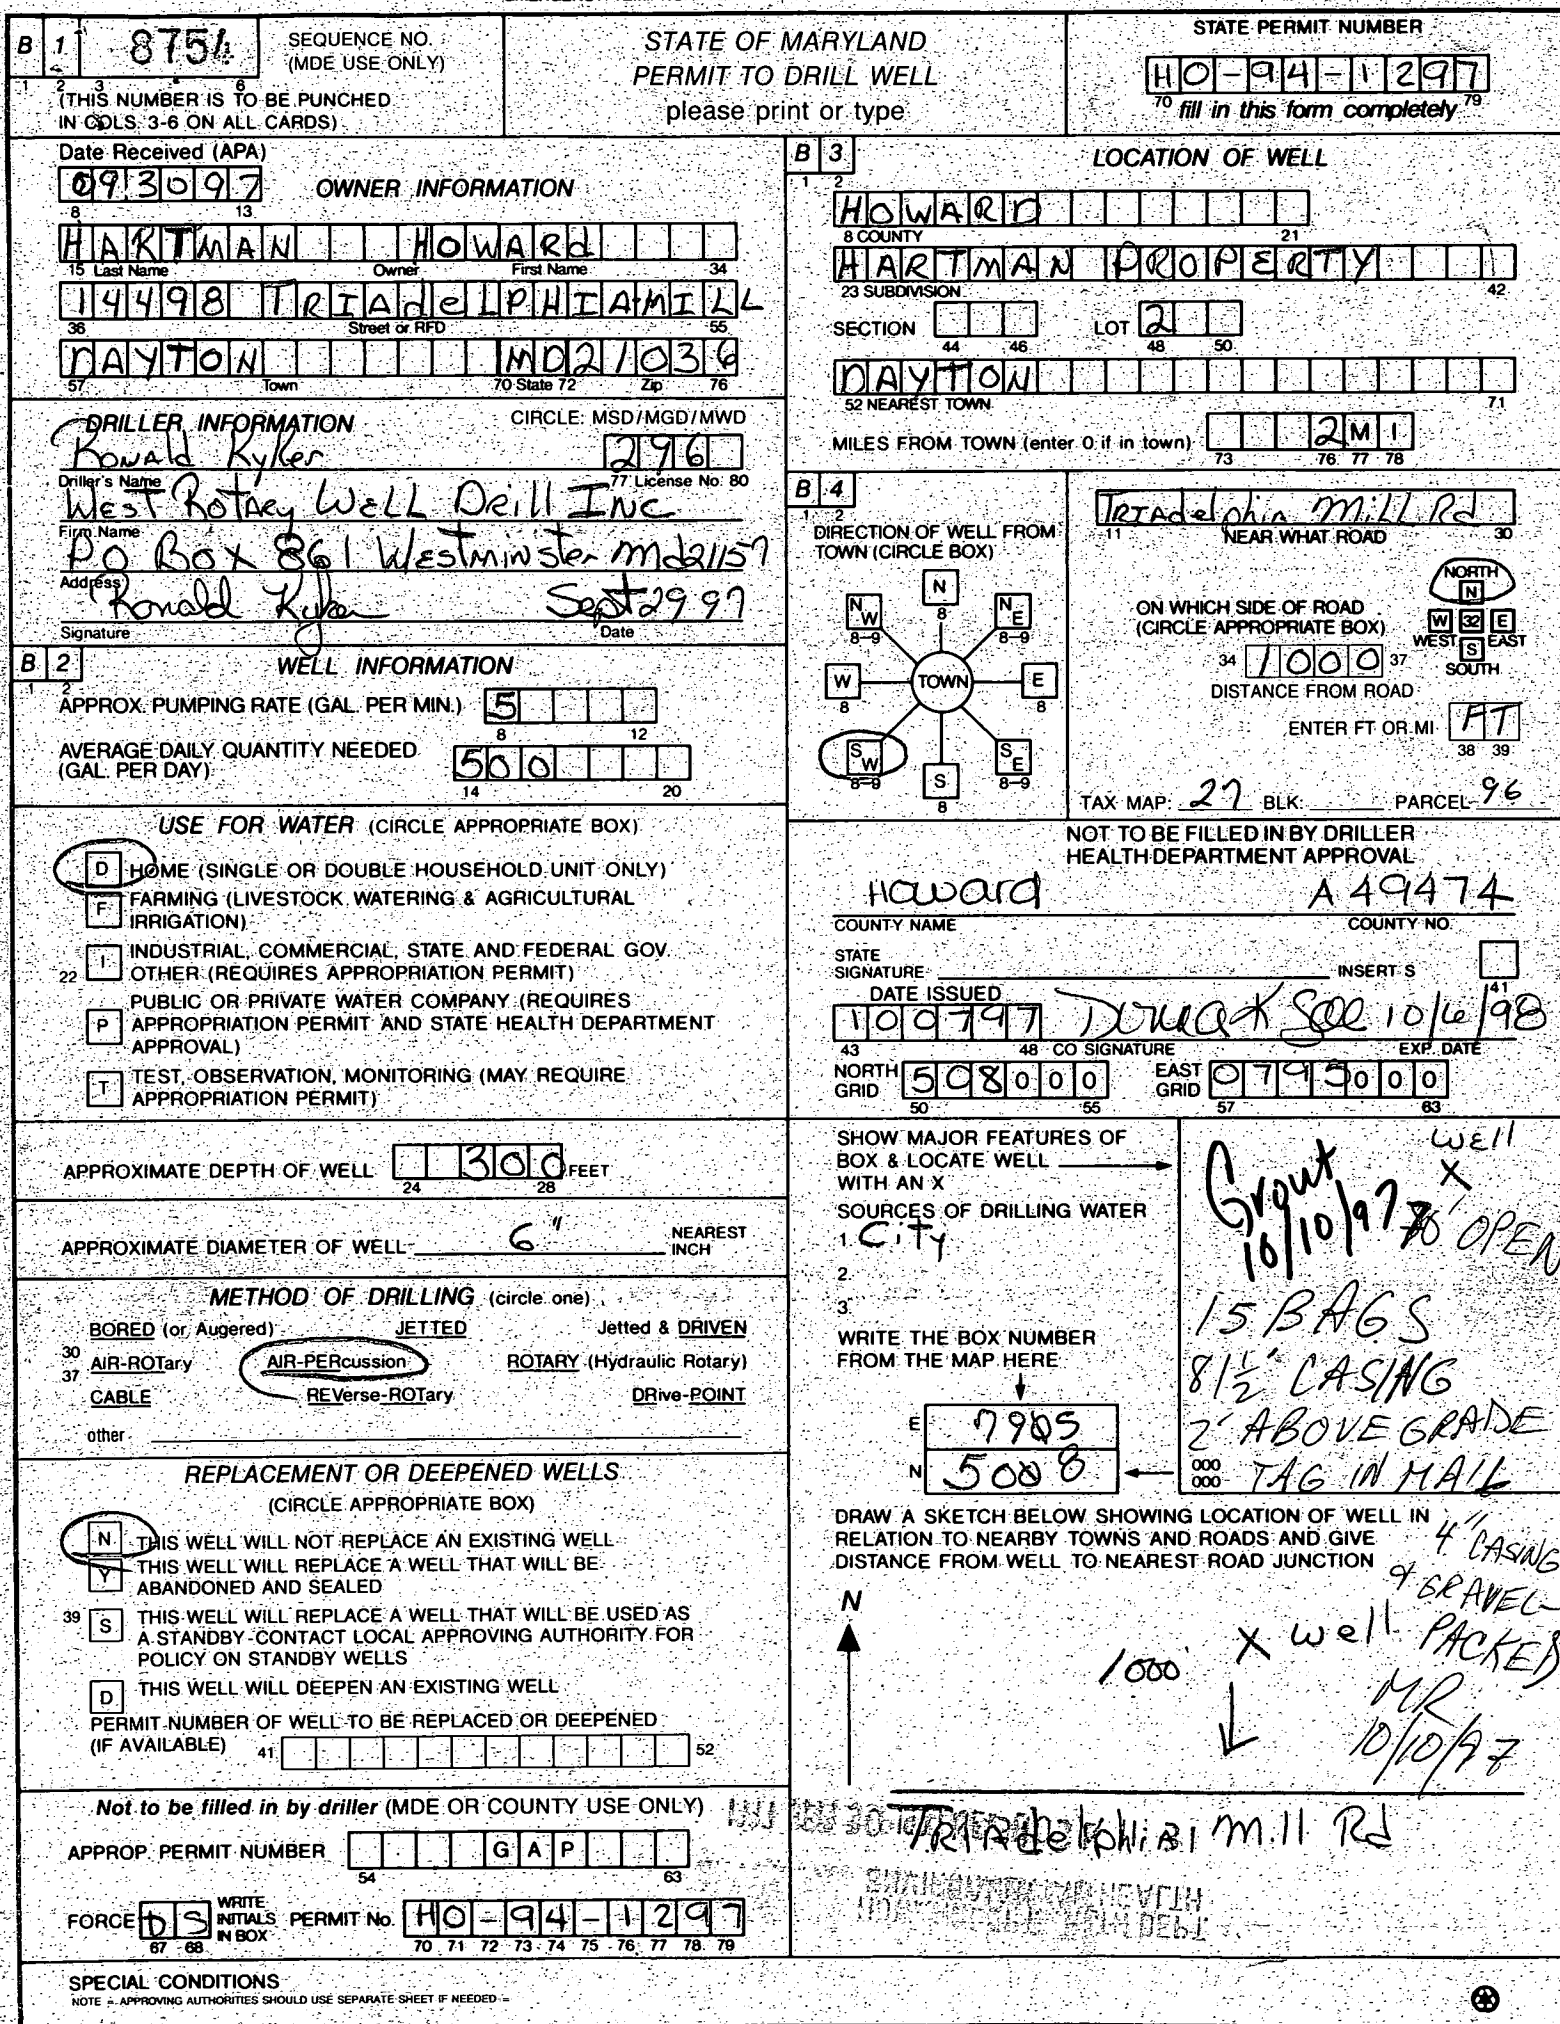 B 1 8754 SEQUENCE NO. (MDE USE ONLY)
1 2 3 6
(THIS NUMBER IS TO BE PUNCHED
IN COLS. 3-6 ON ALL CARDS)
STATE OF MARYLAND
PERMIT TO DRILL WELL
please print or type
STATE PERMIT NUMBER
HO-94-1297
70 fill in this form completely 79
Date Received (APA)
093097
8 13
OWNER INFORMATION
HARTMAN HOWARd
15 Last Name Owner First Name 34
14498 TRIAdelPHIA MILL
36 Street or RFD 55
DAYTON MD21036
57 Town 70 State 72 Zip 76
DRILLER INFORMATION
CIRCLE: MSD/MGD/MWD
Ronald Kyker 296
Driller's Name 77 License No. 80
West Rotary Well Drill Inc
Firm Name
PO Box 861 Westminster Md 21157
Address
Ronald Kyker Sept 29 97
Signature Date
B 2 WELL INFORMATION
1 2
APPROX. PUMPING RATE (GAL. PER MIN.) 5
8 12
AVERAGE DAILY QUANTITY NEEDED
(GAL. PER DAY) 500
14 20
USE FOR WATER (CIRCLE APPROPRIATE BOX)
D HOME (SINGLE OR DOUBLE HOUSEHOLD UNIT ONLY)
F FARMING (LIVESTOCK WATERING & AGRICULTURAL
IRRIGATION)
22 I INDUSTRIAL, COMMERCIAL, STATE AND FEDERAL GOV.
OTHER (REQUIRES APPROPRIATION PERMIT)
P PUBLIC OR PRIVATE WATER COMPANY (REQUIRES
APPROPRIATION PERMIT AND STATE HEALTH DEPARTMENT
APPROVAL)
T TEST, OBSERVATION, MONITORING (MAY REQUIRE
APPROPRIATION PERMIT)
APPROXIMATE DEPTH OF WELL 300 FEET
24 28
APPROXIMATE DIAMETER OF WELL 6" NEAREST INCH
METHOD OF DRILLING (circle one)
BORED (or Augered) JETTED Jetted & DRIVEN
30 37 AIR-ROTary AIR-PERcussion ROTARY (Hydraulic Rotary)
CABLE REVerse-ROTary DRive-POINT
other
REPLACEMENT OR DEEPENED WELLS
(CIRCLE APPROPRIATE BOX)
N THIS WELL WILL NOT REPLACE AN EXISTING WELL
Y THIS WELL WILL REPLACE A WELL THAT WILL BE
ABANDONED AND SEALED
39 S THIS WELL WILL REPLACE A WELL THAT WILL BE USED AS
A STANDBY-CONTACT LOCAL APPROVING AUTHORITY FOR
POLICY ON STANDBY WELLS
D THIS WELL WILL DEEPEN AN EXISTING WELL
PERMIT NUMBER OF WELL TO BE REPLACED OR DEEPENED
(IF AVAILABLE) 41 52
Not to be filled in by driller (MDE OR COUNTY USE ONLY)
APPROP. PERMIT NUMBER GAP
54 63
FORCE DS WRITE INITIALS IN BOX PERMIT No. HO-94-1297
67 68 70 71 72 73 74 75 76 77 78 79
SPECIAL CONDITIONS
NOTE - APPROVING AUTHORITIES SHOULD USE SEPARATE SHEET IF NEEDED =
B 3 LOCATION OF WELL
1 2
HOWARD
8 COUNTY 21
HARTMAN PROPERTY
23 SUBDIVISION 42
SECTION LOT 2
44 46 48 50
DAYTON
52 NEAREST TOWN 71
MILES FROM TOWN (enter 0 if in town) 2 MI
73 76 77 78
B 4
1 2
DIRECTION OF WELL FROM
TOWN (CIRCLE BOX)
N
8
NW NE
8-9 8-9
W TOWN E
8 8
SW SE
8-9 8-9
S
8
TRIAdelphia Mill Rd
11 NEAR WHAT ROAD 30
ON WHICH SIDE OF ROAD
(CIRCLE APPROPRIATE BOX)
NORTH
N
W 32 E
WEST EAST
S
SOUTH
34 1000 37
DISTANCE FROM ROAD
ENTER FT OR MI FT
38 39
TAX MAP: 27 BLK: PARCEL 96
NOT TO BE FILLED IN BY DRILLER
HEALTH DEPARTMENT APPROVAL
Howard A49474
COUNTY NAME COUNTY NO.
STATE
SIGNATURE INSERT S
41
DATE ISSUED
100797 10/6/98
43 48 CO SIGNATURE EXP. DATE
NORTH GRID 508000 EAST GRID 0795000
50 55 57 63
SHOW MAJOR FEATURES OF
BOX & LOCATE WELL
WITH AN X
SOURCES OF DRILLING WATER
1. City
2.
3.
WRITE THE BOX NUMBER
FROM THE MAP HERE
E 7905
N 5008
000
000
well
X
Grout
10/10/97
OPEN
15 BAGS
81 1/2' CASING
2' ABOVE GRADE
TAG IN MAIL
4" CASING
& GRAVEL-
PACKED
MR
10/10/97
DRAW A SKETCH BELOW SHOWING LOCATION OF WELL IN
RELATION TO NEARBY TOWNS AND ROADS AND GIVE
DISTANCE FROM WELL TO NEAREST ROAD JUNCTION
N
X well
1000'
TRIAdelphia Mill Rd